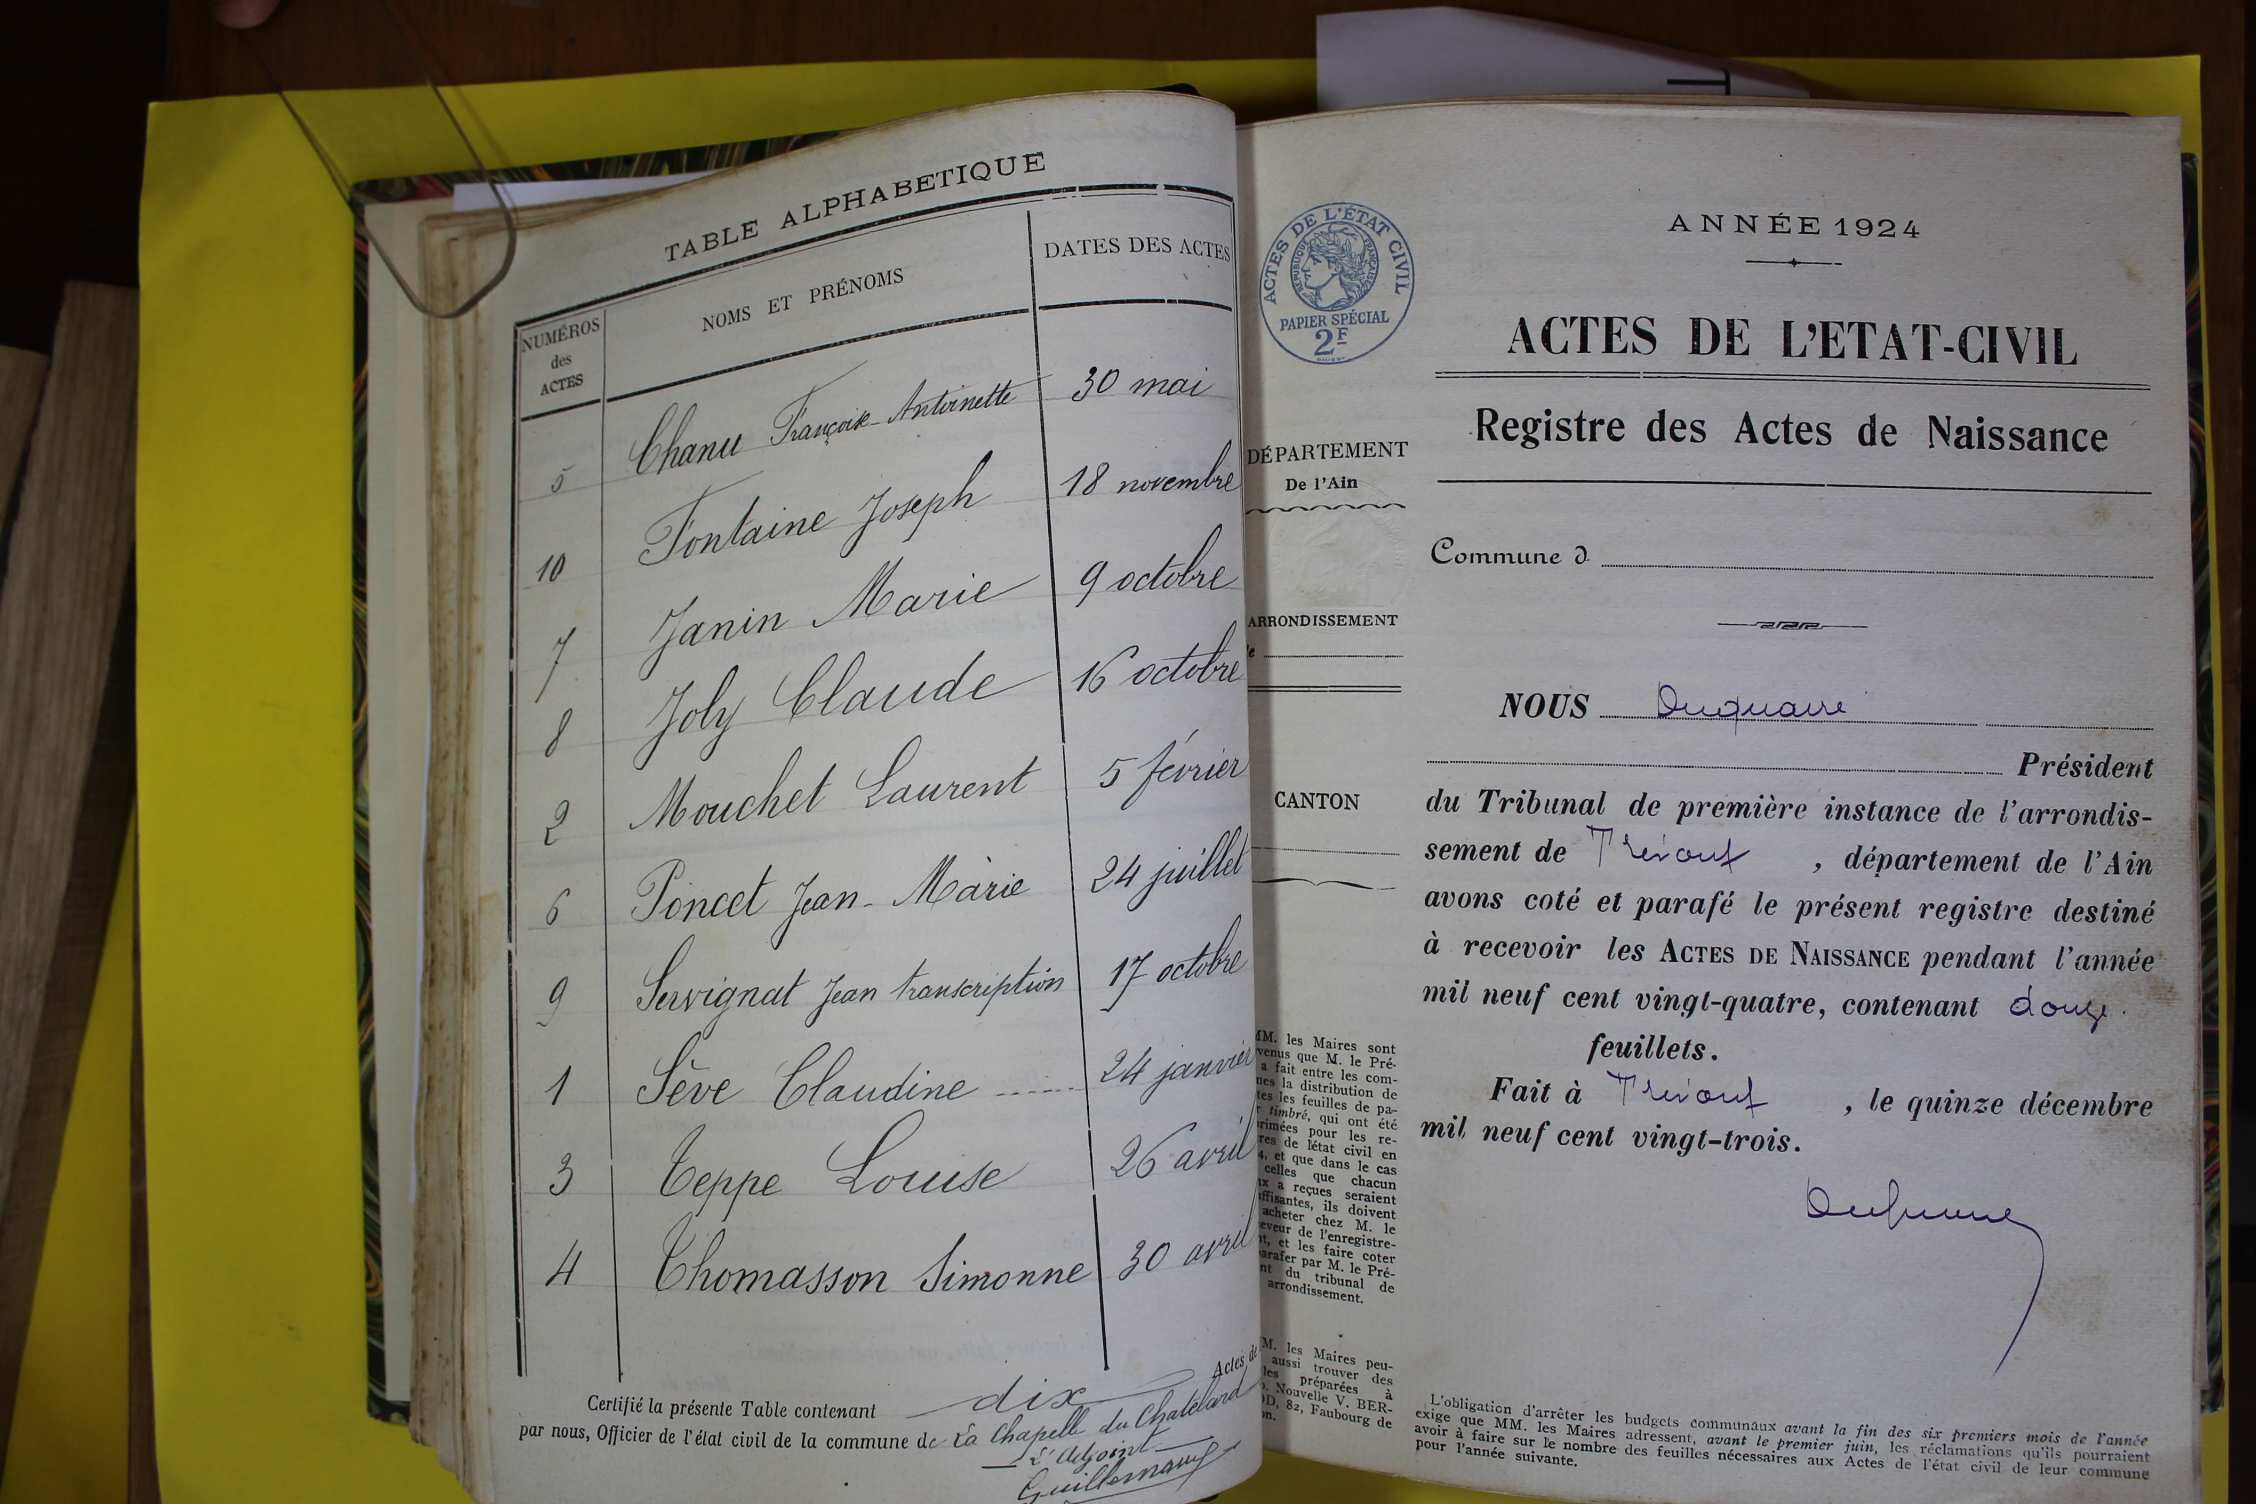 TABLE ALPHABETIQUE
NUMÉROS
des
ACTES
NOMS ET PRÉNOMS
DATES DES ACTES
5 Chanu Françoise-Antoinette 30 mai
10 Fontaine Joseph 18 novembre
7 Janin Marie 9 octobre
8 Joly Claude 16 octobre
2 Mouchet Laurent 5 février
6 Poncet Jean-Marie 24 juillet
9 Servignat Jean transcription 17 octobre
1 Sève Claudine 24 janvier
3 Teppe Louise 26 avril
4 Thomasson Simonne 30 avril
Certifié la présente Table contenant dix Actes de
par nous, Officier de l'état civil de la commune de La Chapelle du Chatelard
L'Adjoint
ACTES DE L'ÉTAT CIVIL
RÉPUBLIQUE FRANÇAISE
PAPIER SPÉCIAL
2F
DÉPARTEMENT
De l'Ain
ARRONDISSEMENT
CANTON
MM. les Maires sont
venus que M. le Pré-
a fait entre les com-
nes la distribution de
tes les feuilles de pa-
r timbré, qui ont été
rimées pour les re-
res de l'état civil en
4, et que dans le cas
celles que chacun
ux a reçues seraient
ffisantes, ils doivent
acheter chez M. le
eveur de l'enregistre-
nt, et les faire coter
parafer par M. le Pré-
nt du tribunal de
arrondissement.
M. les Maires peu-
aussi trouver des
les préparées à
p. Nouvelle V. BER-
OD, 82, Faubourg de
on.
ANNÉE 1924
ACTES DE L'ETAT-CIVIL
Registre des Actes de Naissance
Commune d
NOUS Duquaire
Président
du Tribunal de première instance de l'arrondis-
sement de Trévoux , département de l'Ain
avons coté et parafé le présent registre destiné
à recevoir les ACTES DE NAISSANCE pendant l'année
mil neuf cent vingt-quatre, contenant douze
feuillets.
Fait à Trévoux , le quinze décembre
mil neuf cent vingt-trois.
L'obligation d'arrêter les budgets communaux avant la fin des six premiers mois de l'année
exige que MM. les Maires adressent, avant le premier juin, les réclamations qu'ils pourraient
avoir à faire sur le nombre des feuilles nécessaires aux Actes de l'état civil de leur commune
pour l'année suivante.